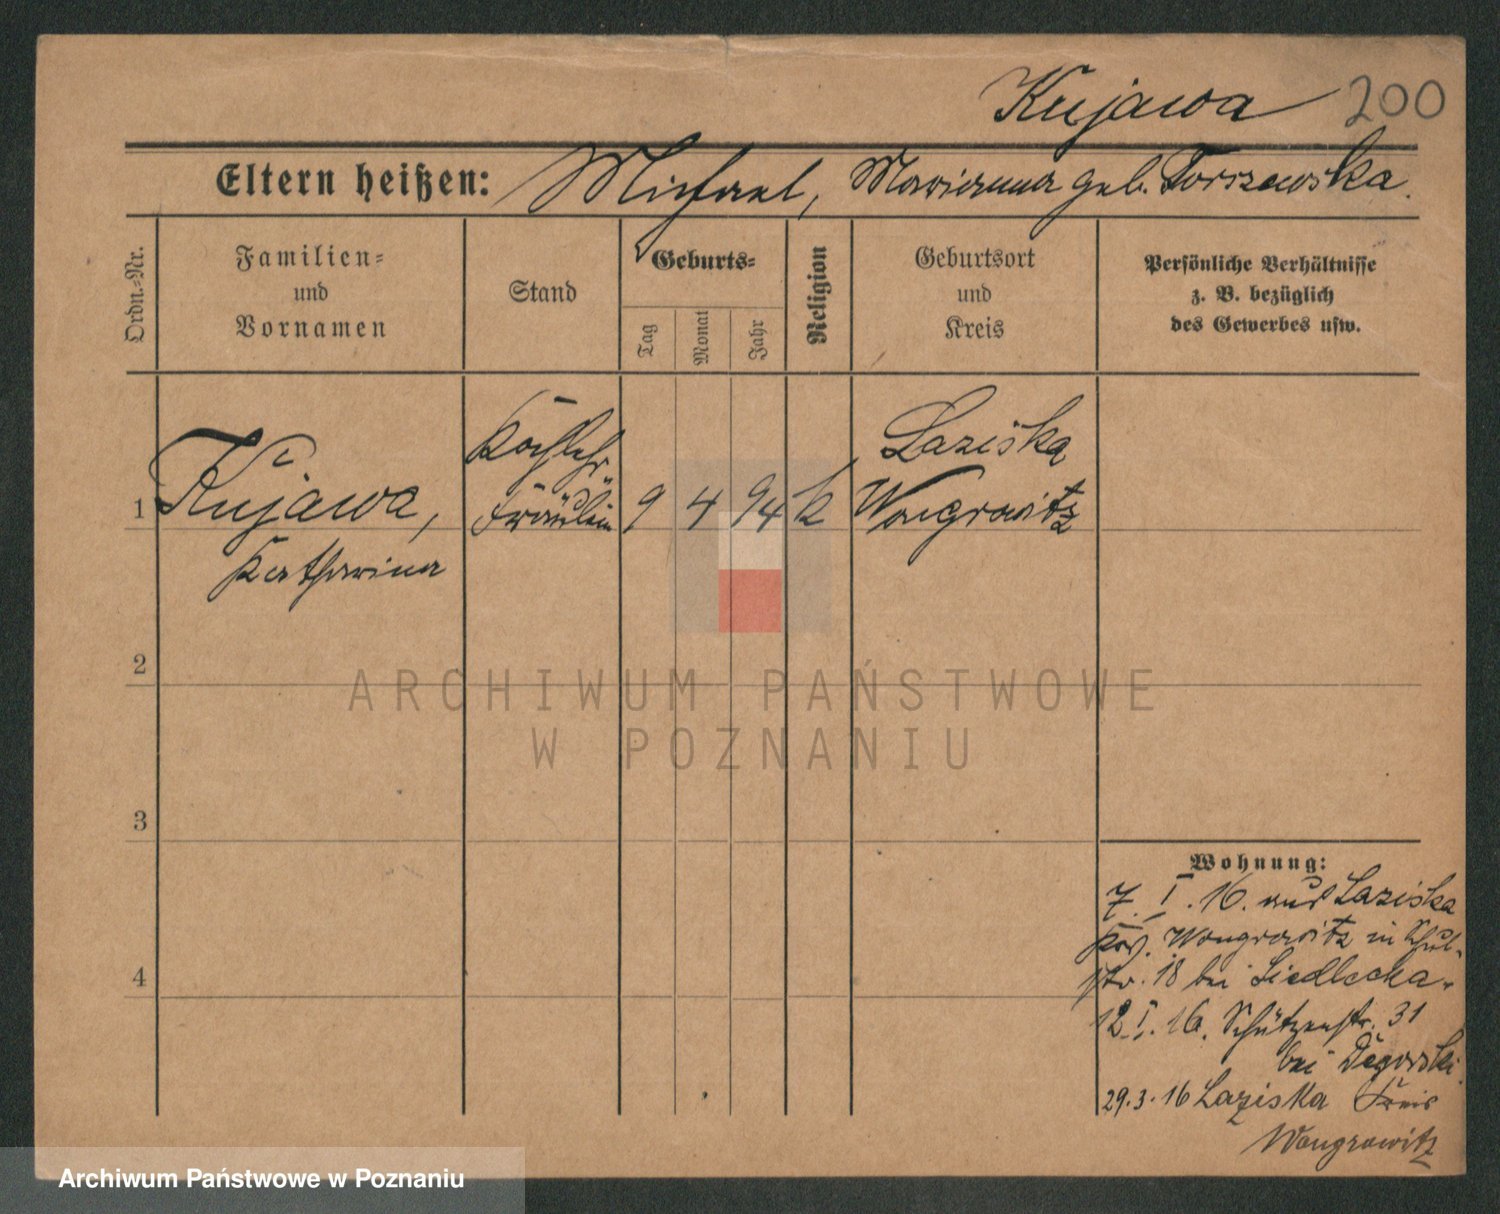 Kujawa 200
Eltern heißen: Michael, Marianna geb. Torszewska.
Ordn.-Nr.
Familien-
und
Vornamen
Stand
Geburts-
Tag
Monat
Jahr
Religion
Geburtsort
und
Kreis
Persönliche Verhältnisse
z. B. bezüglich
des Gewerbes usw.
1 Kujawa,
Katharina
Kochlehr-
Fräulein
9 4 94 k
Laziska
Wongrowitz
2
3
4
Wohnung:
7. I. 16. aus Laziska
Krs. Wongrowitz in Schul-
str. 18 bei Siedlecka.
12. I. 16. Schützenstr. 31
bei Degorski.
29.3.16 Laziska Kreis
Wongrowitz
ARCHIWUM PAŃSTWOWE
W POZNANIU
Archiwum Państwowe w Poznaniu